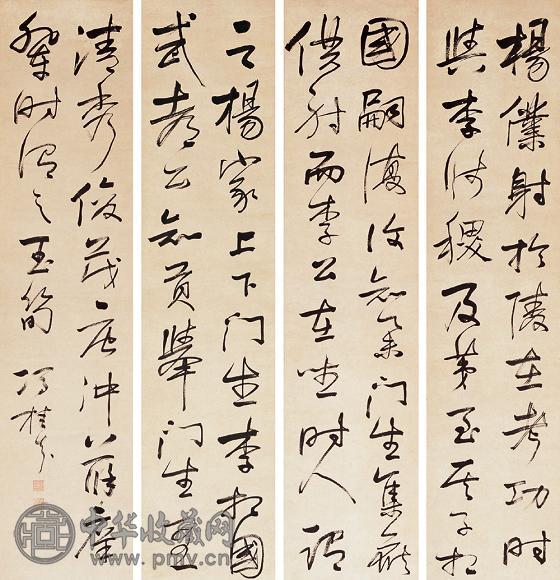 楊僕射於陵在考功時
與李師稷及第至其子相
國嗣復後知舉門生集候
僕射而李公在坐時人謂
之楊家上下門生李相國
武都公知貢舉門生多
清秀俊茂唐沖薛庠
輩時謂之玉筍 馮桂芬
中华收藏网
www.pmv.cn